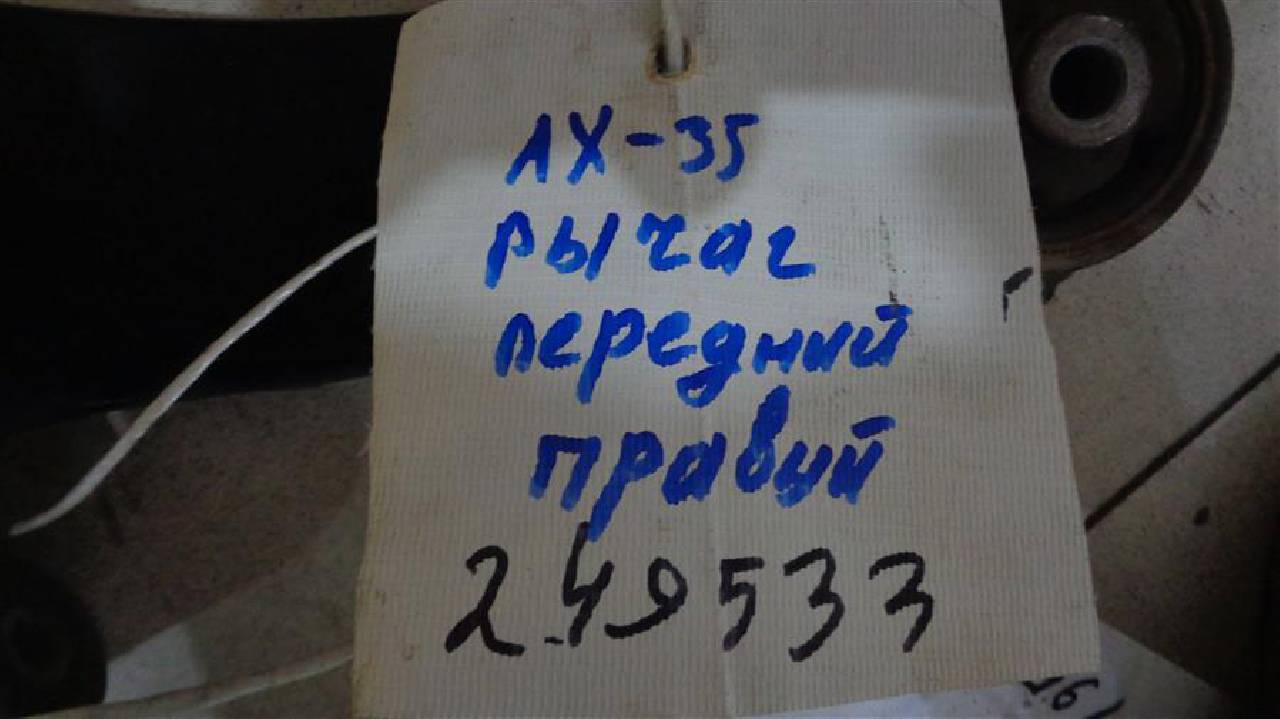 АХ-35
рычаг
передний
правый
249533